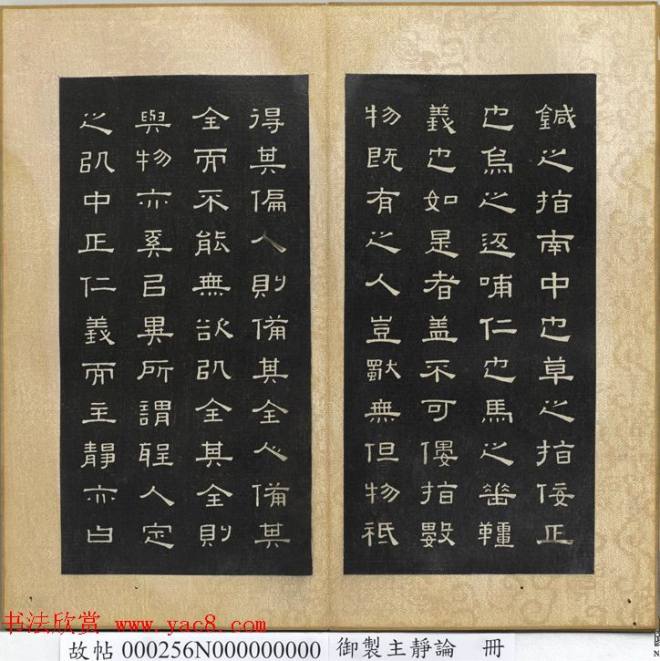 鍼之指南中也草之指佞正
也烏之返哺仁也馬之垂韁
義也如是者蓋不可僂指數
物既有之人豈獨無但物祗
得其偏人則備其全人備其
全而不能無欲以全其全則
與物亦奚以異所謂聖人定
之以中正仁義而主靜亦白
书法欣赏 www.yac8.com
故帖 000256N000000000 御製主靜論 冊